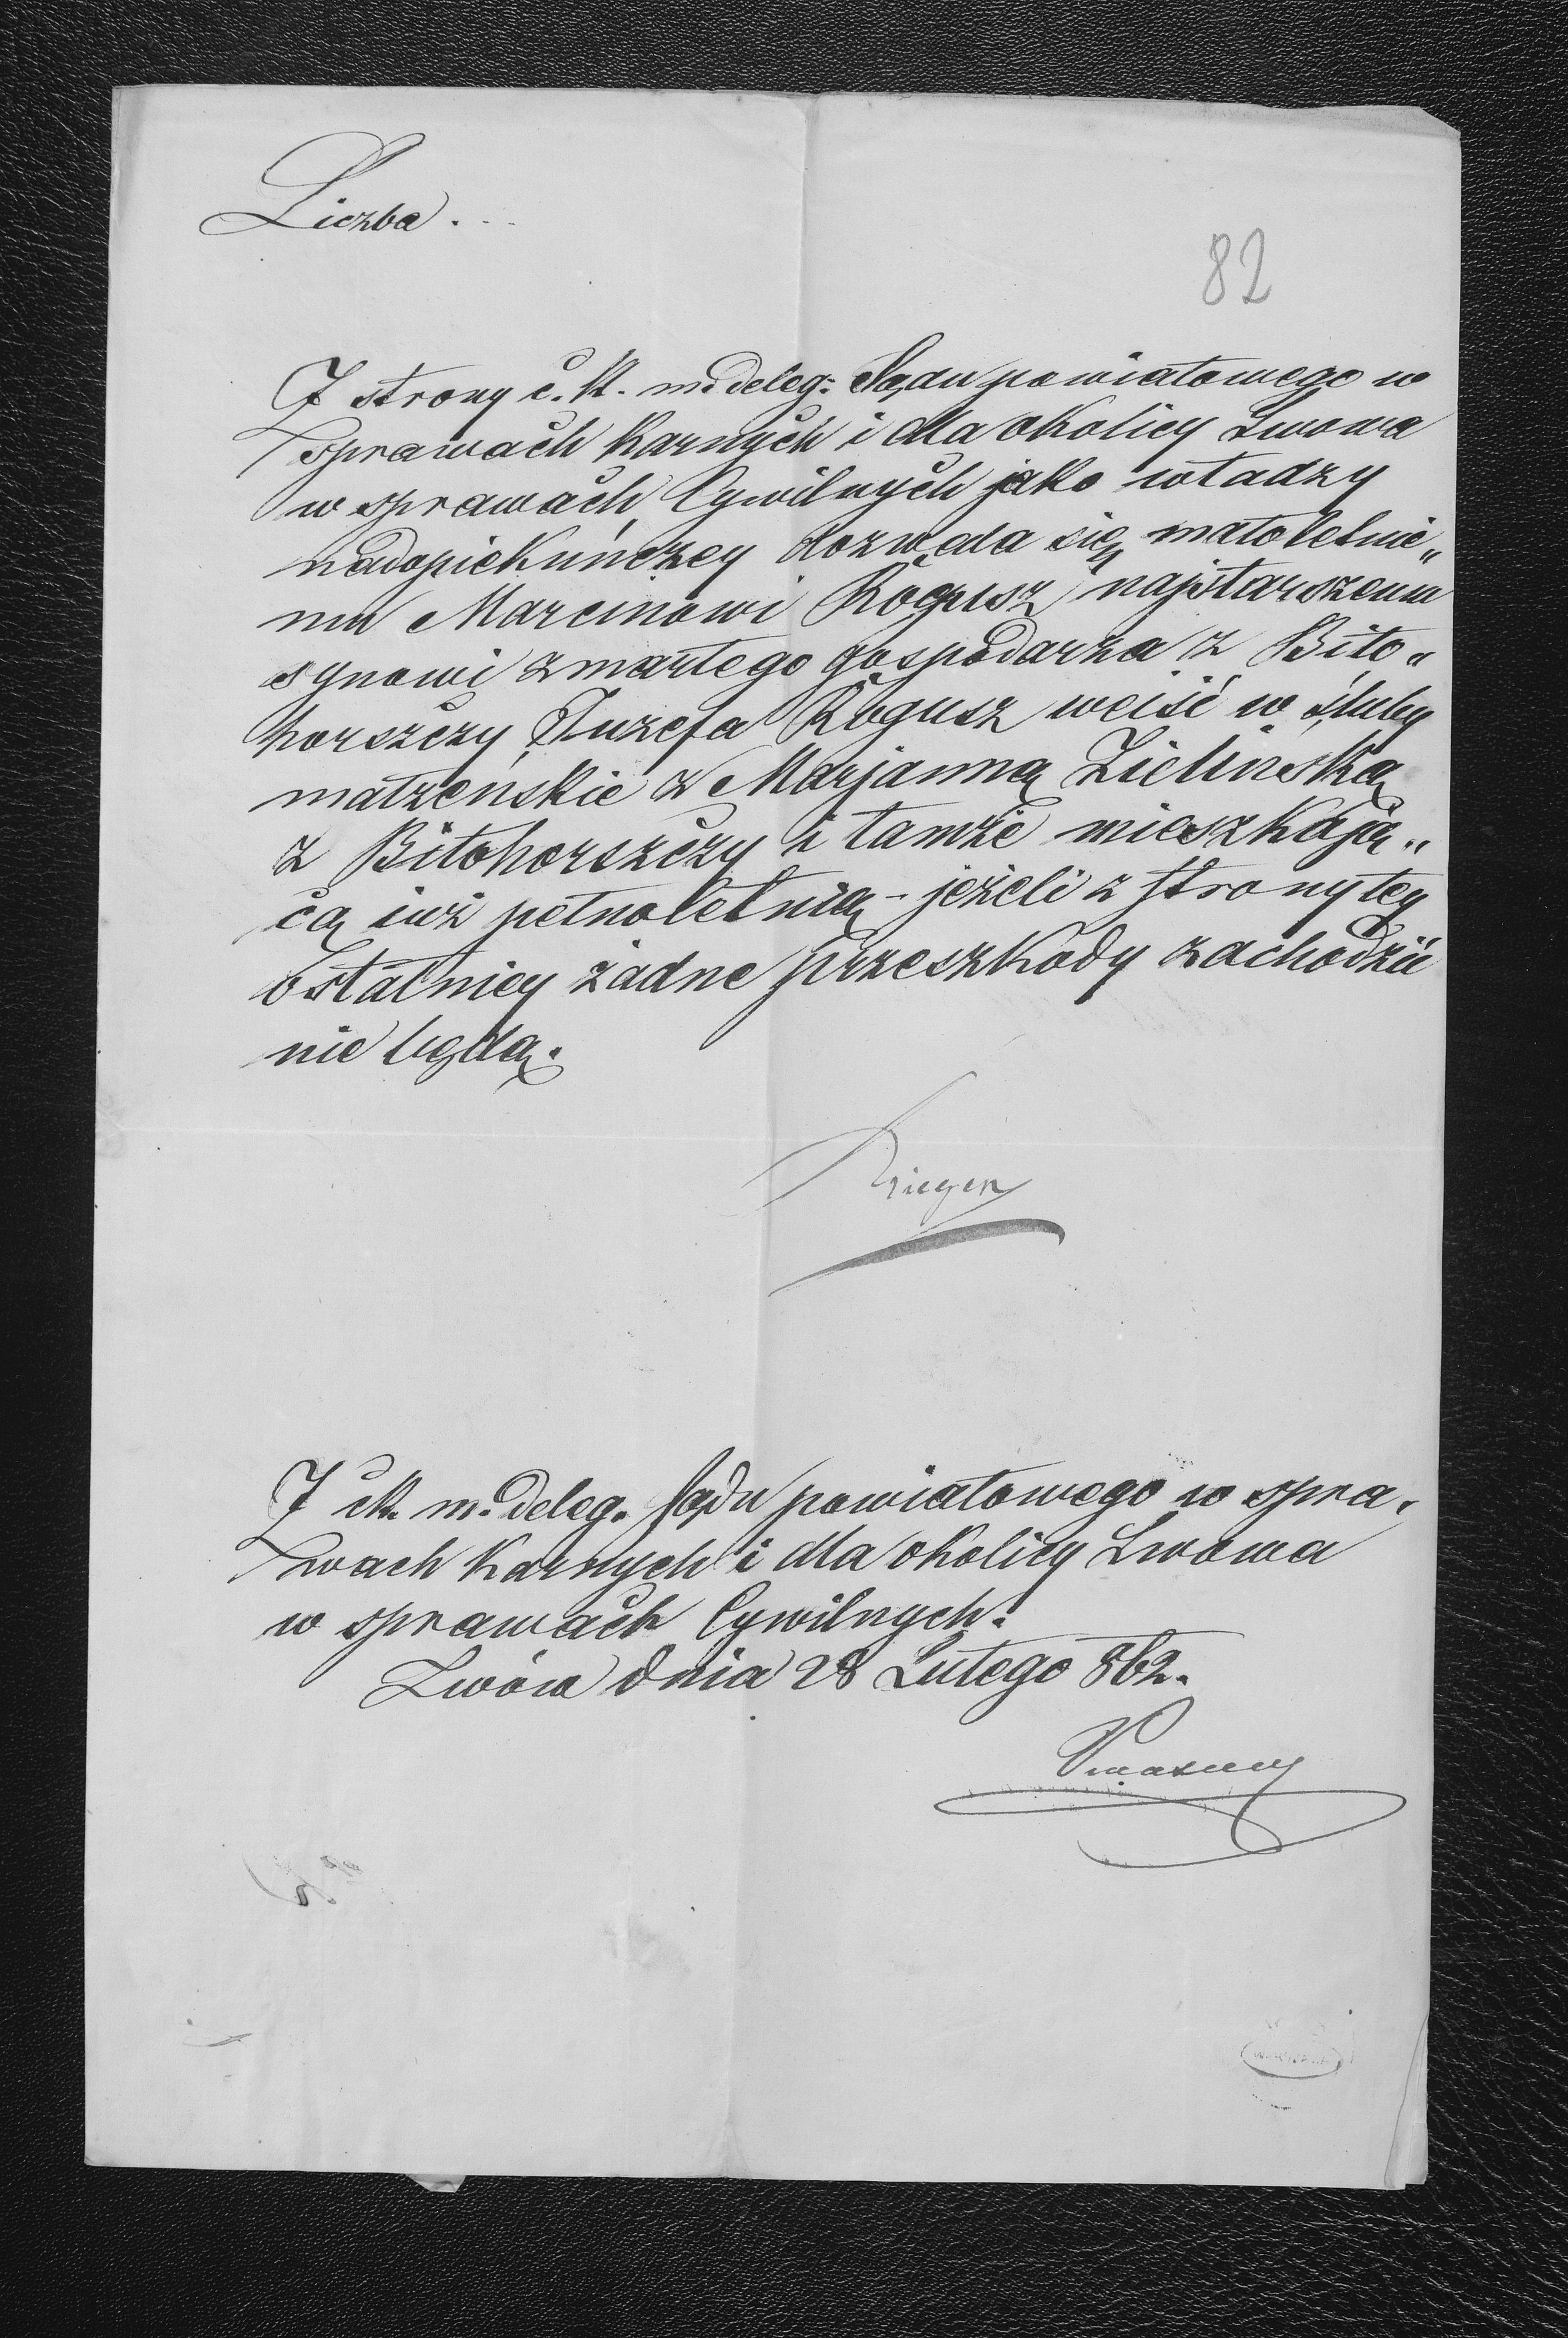 Liczba . . .
82
Z strony c. k. m. deleg: Sądu powiatowego w
sprawach karnych i dla okolicy Lwowa
w sprawach Cywilnych jako władzy
nadopiekuńczey dozwala się małoletnie„
mu Marcinowi Rogusz najstarszemu
synowi zmarłego gospodarza z Biło„
horszczy Juzefa Rogusz weiść w śluby
małżeńskie z Marjanną Zielińską
z Biłohorszczy i tamże mieszkają„
cą iuż pełnoletnią - jeżeli z strony tey
ostatniey żadne przeszkody zachodzić
nie będą.
Krieger
Z ck. m. deleg. Sądu powiatowego w spra„
wach karnych i dla okolicy Lwowa
w sprawach Cywilnych.
Lwów dnia 28 Lutego 862.